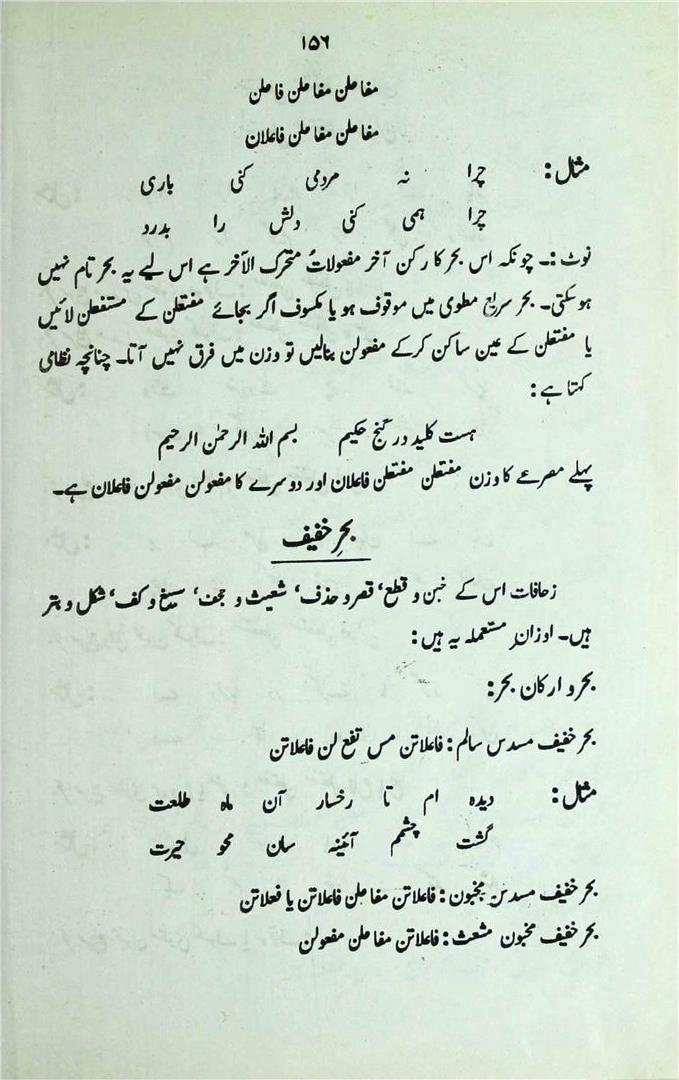 ۱۵۶
مفاعلن مفاعلن فاعلن
مفاعلن مفاعلن فاعلان
مثال: چرا نہ مردمی کنی باری
چرا ہمی کنی دلش را بدرد
نوٹ :۔ چونکہ اس بحر کا رکن آخر مفعولاتُ متحرک الآخر ہے اس لیے یہ بحر تام نہیں
ہو سکتی۔ بحر سریع مطوی میں موقوف ہو یا مکسوف اگر بجائے مفتعلن کے مستفعلن لائیں
یا مفتعلن کے عین ساکن کرکے مفعولن بنالیں تو وزن میں فرق نہیں آتا۔ چنانچہ نظامی
کہتا ہے:
ہست کلید در گنج حکیم بسم اللہ الرحمٰن الرحیم
پہلے مصرعے کا وزن مفتعلن مفتعلن فاعلان اور دوسرے کا مفعولن مفعولن فاعلان ہے۔
بحرِ خفیف
زحافات اس کے خبن و قطع، قصر و حذف، شعیث و جحف، سبیغ و کف، شکل و بتر
ہیں۔ اوزانِ مستعملہ یہ ہیں:
بحر و ارکان بحر:
بحر خفیف مسدس سالم: فاعلاتن مس تفع لن فاعلاتن
مثال: دیدہ ام تا رخسار آن ماہ طلعت
گشت چشمم آئینہ سان محو حیرت
بحر خفیف مسدس مخبون: فاعلاتن مفاعلن فاعلاتن یا فعلاتن
بحر خفیف مخبون مشعث: فاعلاتن مفاعلن مفعولن